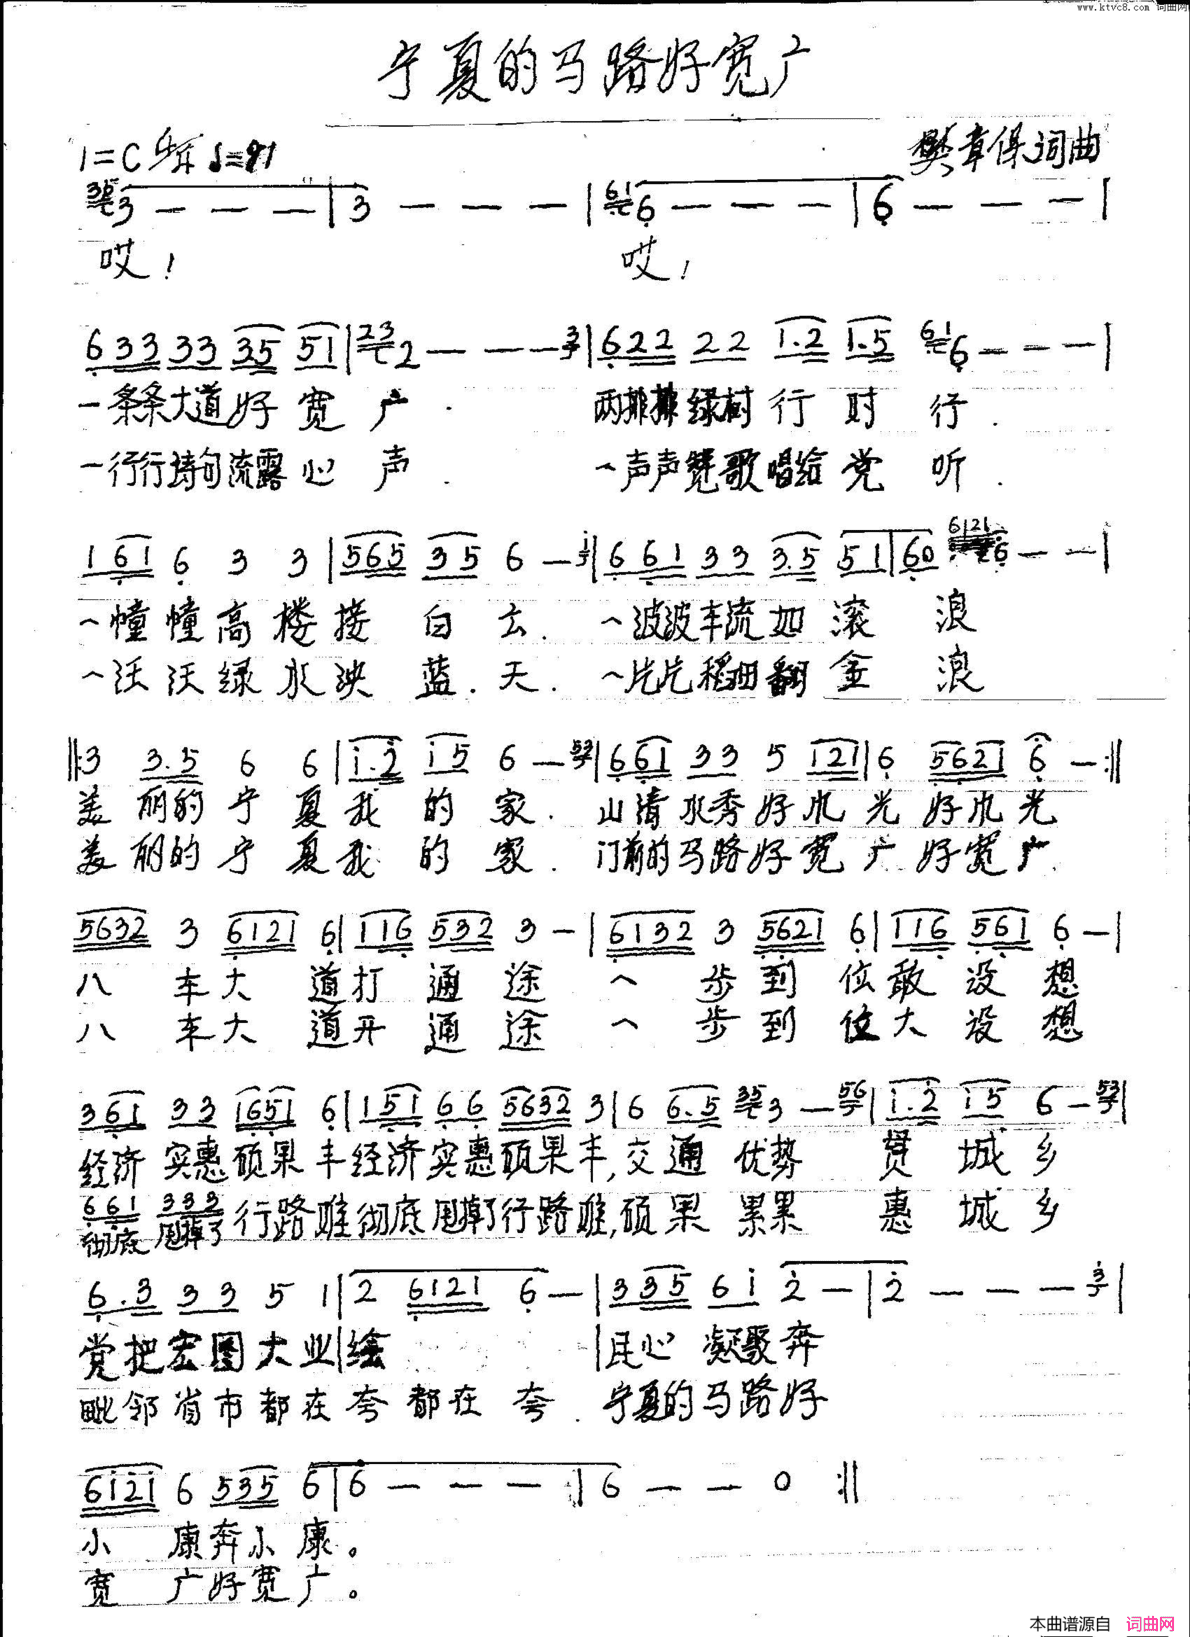 www.ktvc8.com 词曲网
宁夏的马路好宽广
1=C
樊章保词曲
3 — — — | 3 — — — | 6 — — — | 6 — — — |
哎! 哎!
6 3 3 3 3 3 5 5 1 | 2 — — — | 6 2 2 2 2 1. 2 1. 5 6 — — — |
一条条大道好宽广. 两排排绿树行对行.
一行行诗句流露心声. 一声声赞歌唱给党听.
1 6 1 6 3 3 | 5 6 5 3 5 6 — | 6 6 1 3 3 3. 5 5 1 | 6 0 6 — — |
一幢幢高楼接白云. 一波波车流如滚浪
一沃沃绿水泱蓝.天. 一片片稻田翻金浪
‖: 3 3. 5 6 6 | 1. 2 1 5 6 — | 6 6 1 3 3 5 1 2 1 | 6 5 6 2 1 6 — :‖
美丽的宁夏我的家. 山清水秀好风光好风光
美丽的宁夏我的家. 门前的马路好宽广好宽广.
5 6 3 2 3 6 1 2 1 6 | 1 1 6 5 3 2 3 — | 6 1 3 2 3 5 6 2 1 6 | 1 1 6 5 6 1 6 — |
八车大道打通途 一步到位敢设想
八车大道开通途 一步到位大设想
3 6 1 3 3 1 6 5 1 6 | 1 5 1 6 6 5 6 3 2 3 | 6 6. 5 3 — | 1. 2 1 5 6 — |
经济实惠硕果丰经济实惠硕果丰,交通优势贯城乡
6 6 1 3 3 3 行路难彻底甩掉了行路难,硕果累累惠城乡
彻底甩掉了
6. 3 3 3 5 1 | 2 6 1 2 1 6 — | 3 3 5 6 1 2 — | 2 — — — |
党把宏图大业绘 民心凝聚奔
毗邻省市都在夸都在夸. 宁夏的马路好
6 1 2 1 6 5 3 5 6 | 6 — — — | 6 — — 0 :‖
小康奔小康。
宽广好宽广。
本曲谱源自 词曲网